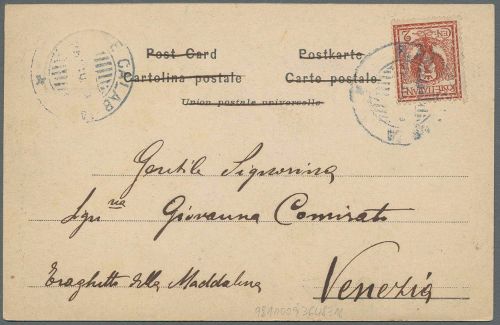 E. GALAB
Post Card Postkarte
Cartolina postale Carte postale
Union postale universelle
Gentile Signorina
Sgn na Giovanna Comirato
Traghetto della Maddalena
Venezia